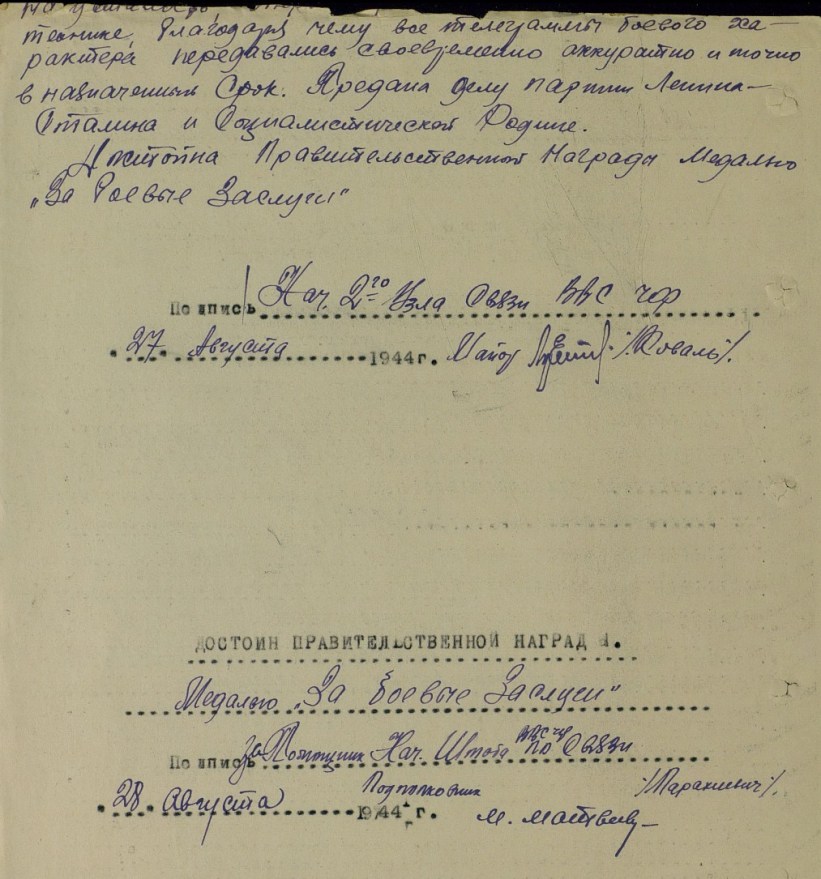 технике, благодаря чему все телеграммы боевого ха-
рактера передавались своевременно аккуратно и точно
в назначенный срок. Предана делу партии Ленина-
Сталина и Социалистической Родине.
Достойна Правительственной Награды Медалью
„За Боевые Заслуги"
Подпись Нач. 2го Узла Связи ВВС ЧФ
"27" Августа 1944 г. Майор /Коваль/.
ДОСТОИН ПРАВИТЕЛЬСТВЕННОЙ НАГРАДЫ.
Медалью „За боевые Заслуги"
Подпись За Помощник Нач. Штаба ВВС ЧФ по Связи
"28" Августа 1944 г. Подполковник /Паракневич/.